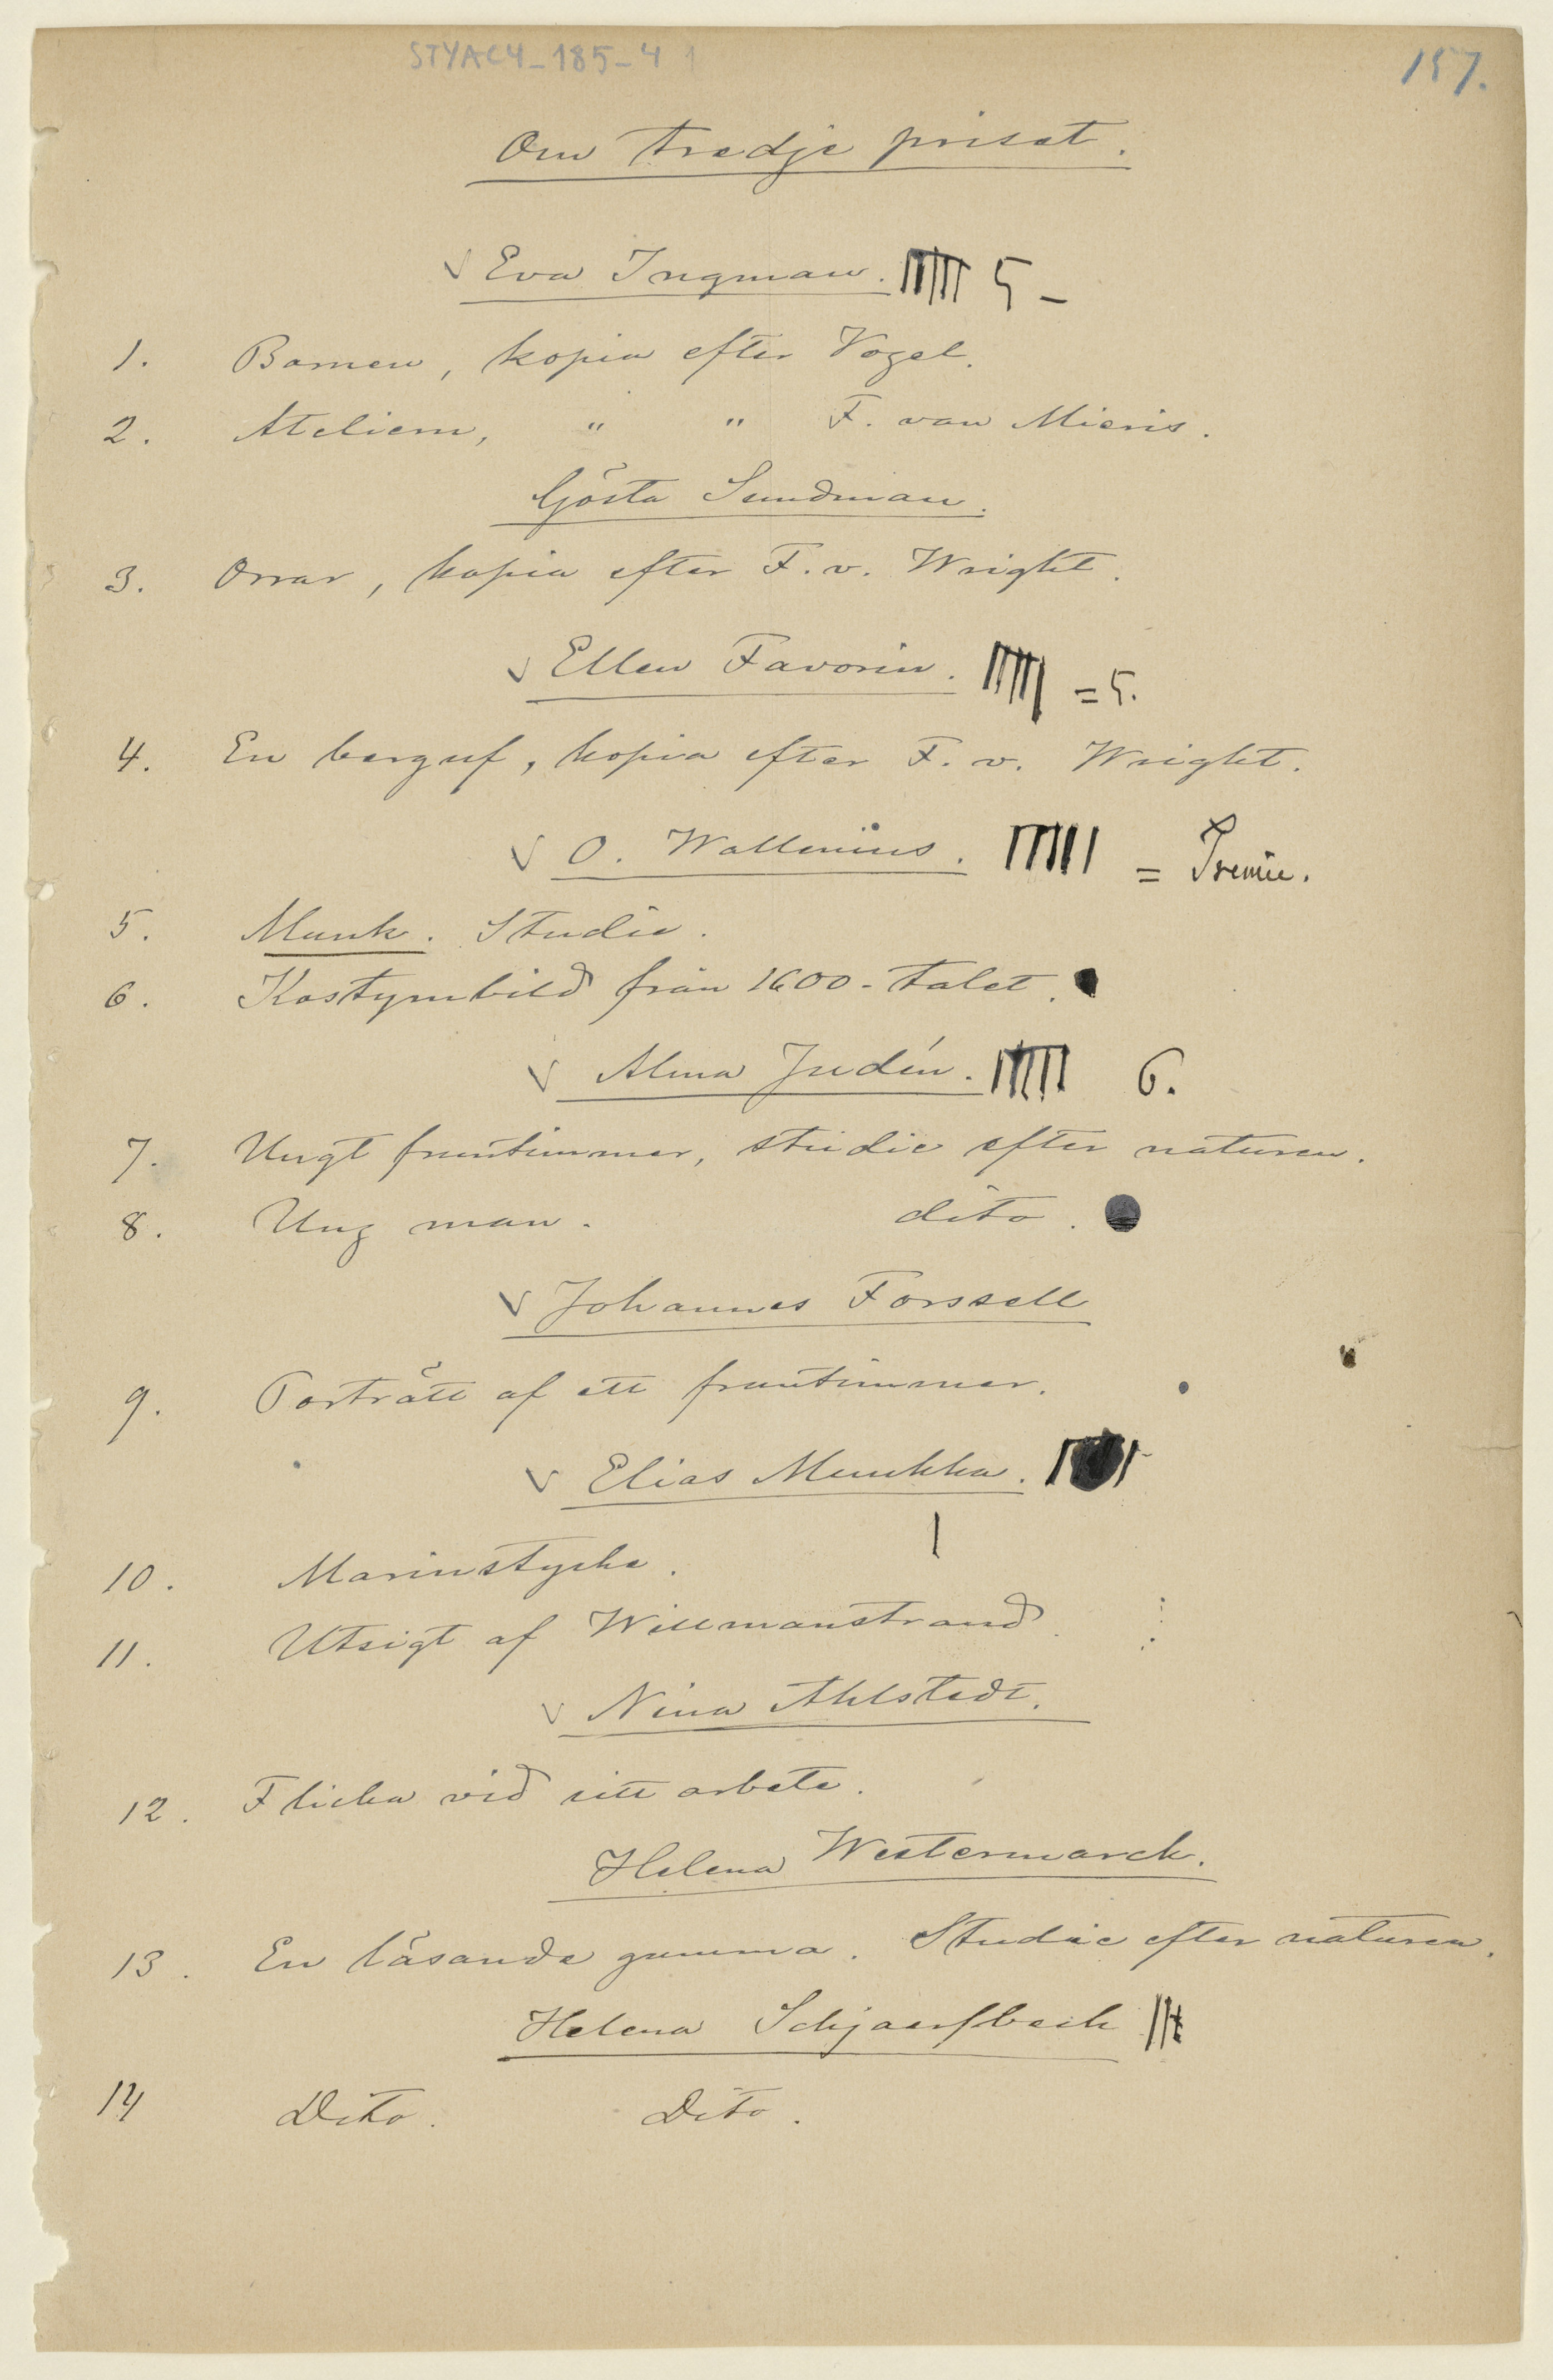 STYAC4-185-4 1
157.
Om tredje priset.
√ Eva Ingman. 5 -
1. Barnen, kopia efter Vogel.
2. Ateliern, " " F. van Mieris.
Gösta Sundman.
3. Orrar, kopia efter F. v. Wright.
√ Ellen Favorin. = 5.
4. En berguf, kopia efter F. v. Wright.
√ O. Wallenius. = Premie.
5. Munk. Studie.
6. Kostymbild från 1600-talet.
√ Alma Judén. 6.
7. Ungt fruntimmer, studie efter naturen.
8. Ung man. dito.
√ Johannes Forssell
9. Porträtt af ett fruntimmer.
√ Elias Muukka.
10. Marinstycke.
11. Utsigt af Willmanstrand.
√ Nina Ahlstedt.
12. Flicka vid sitt arbete.
Helena Westermarck.
13. En läsande gumma. Studie efter naturen.
Helena Schjaerfbeck
14 Dito. Dito.